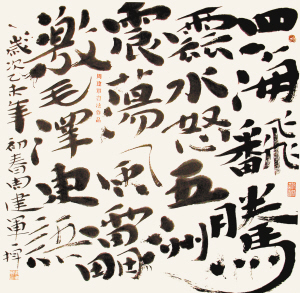 四海飜騰
雲水怒五洲
震蕩風靁
激毛澤東詞
歲次乙未年初春周建軍揮